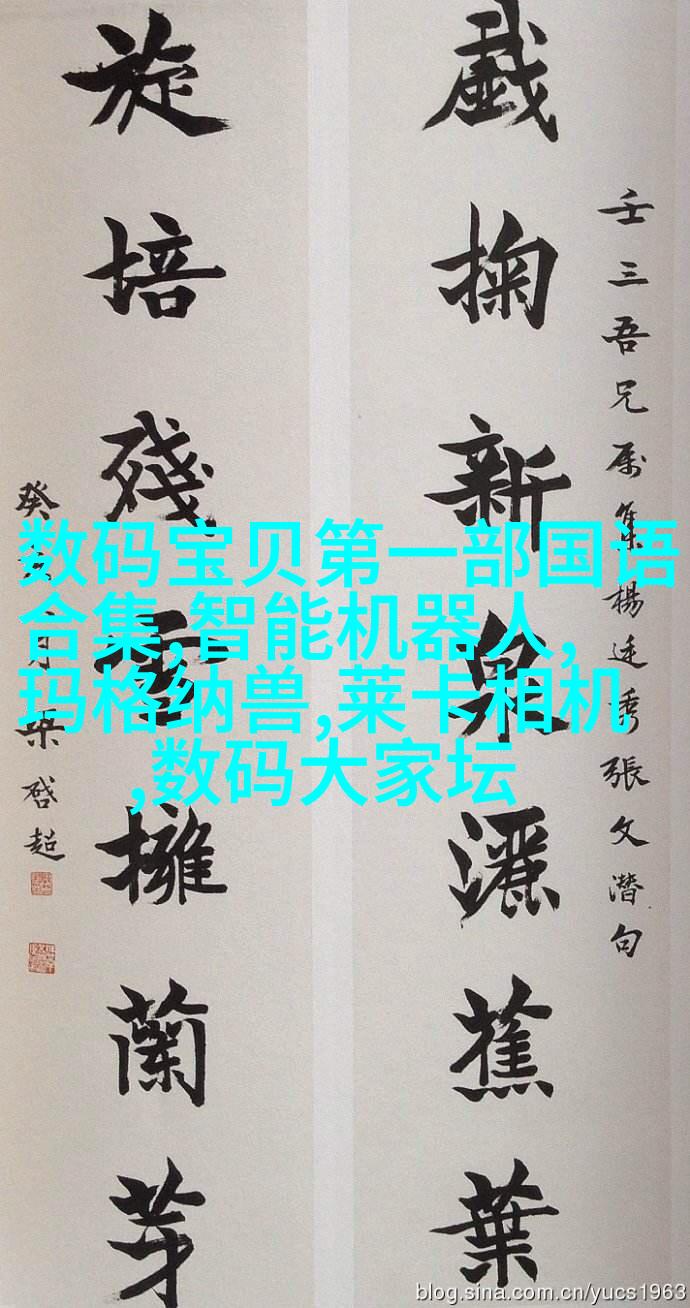 壬三吾兄属集楊廷秀張文潛句
戲掬新泉灑蕉葉
旋培殘雪擁蘭芽
癸亥
月梁啓超
数码宝贝第一部国语
合集,智能机器人,
玛格纳兽,莱卡相机
,数码大家坛
blog.sina.com.cn/yucs1963